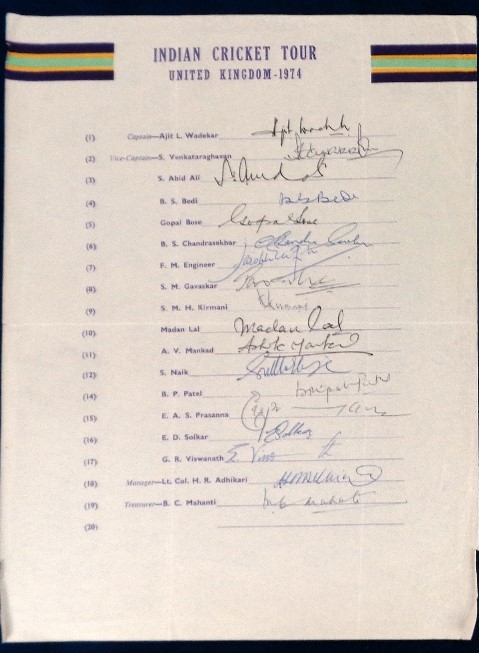 INDIAN CRICKET TOUR
UNITED KINGDOM-1974
(1) Captain—Ajit L. Wadekar
(2) Vice-Captain—S. Venkataraghavan
(3) S. Abid Ali S. Abid Ali
(4) B. S. Bedi B S Bedi
(5) Gopal Bose Gopal Bose
(6) B. S. Chandrasekhar
(7) F. M. Engineer
(8) S. M. Gavaskar
(9) S. M. H. Kirmani Kirmani
(10) Madan Lal Madan Lal
(11) A. V. Mankad Ashok Mankad
(12) S. Naik
(14) B. P. Patel Brijesh Patel
(15) E. A. S. Prasanna
(16) E. D. Solkar Solkar
(17) G. R. Viswanath
(18) Manager—Lt. Cal. H. R. Adhikari
(19) Treasurer—B. C. Mahanti
(20)